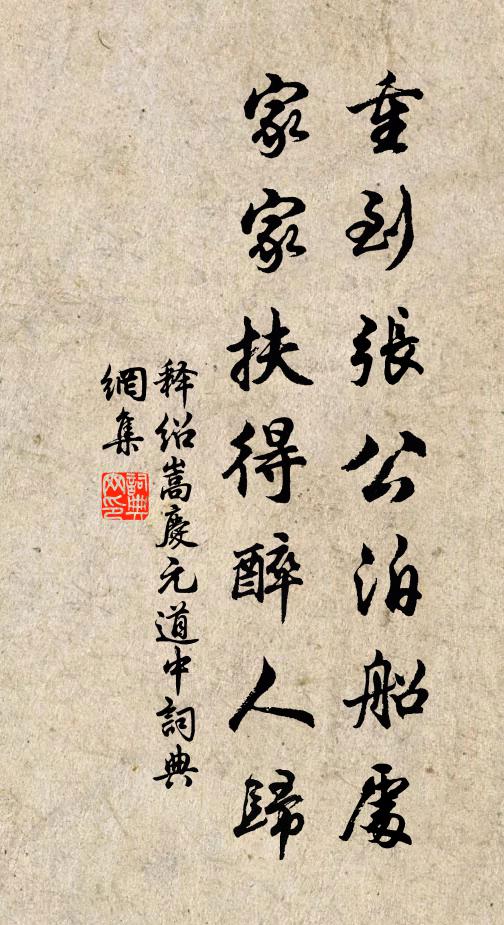 重到張公泊船處
家家扶得醉人歸
释绍嵩慶元道中詞典
網集
詞典
网印